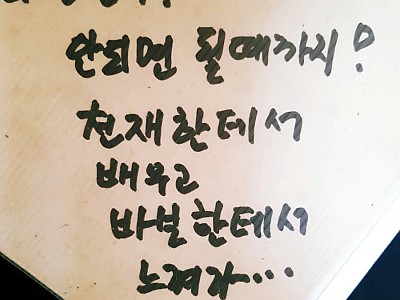 안되면 될때까지!
천재한테서
배우고
바보한테서
느껴라...